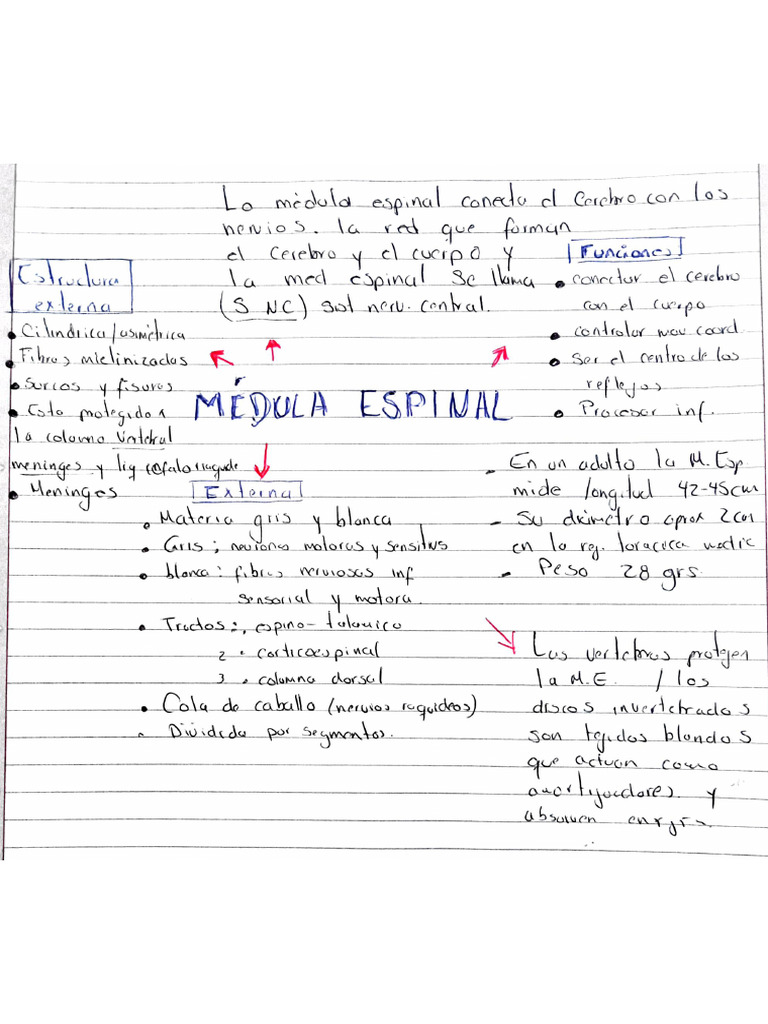 La médula espinal conecta el cerebro con los
nervios. la red que forman
el cerebro y el cuerpo y
la med espinal se llama
(S NC) sist nerv. central.
Estructura
externa
• Cilíndrica/asimétrica
• Fibras mielinizadas
• Surcos y fisuras
• Esta protegida x
la columna vertebral
meninges y liq cefalorraquide
• Meninges
Funciones
• conectar el cerebro
con el cuerpo
• controlar mov coord
• Ser el centro de los
reflejos
• Procesar inf.
MÉDULA ESPINAL
Externa
• Materia gris y blanca
• Gris; neuronas motoras y sensitivas
• blanca: fibras nerviosas inf
sensorial y motora.
• Tractos:, espino-talamico
2 • corticoespinal
3 • columna dorsal
• Cola de caballo (nervios raquideos)
• Dividida por segmentos.
- En un adulto la M. Esp
mide longitud 42-45cm
- Su diámetro aprox 2cm
en la reg. toracica
- Peso 28 grs.
Las vertebras protejen
la M.E. / los
discos invertebrados
son tejidos blandos
que actuan como
amortiguadores y
absorven